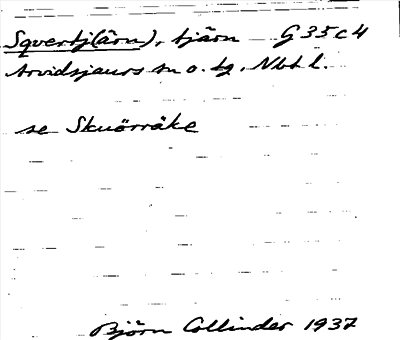 Sqvertj(ärn), tjärn G35c4
Arvidsjaurs sn o. tg. Nbt l.
se Skuörräke
Björn Collinder 1937